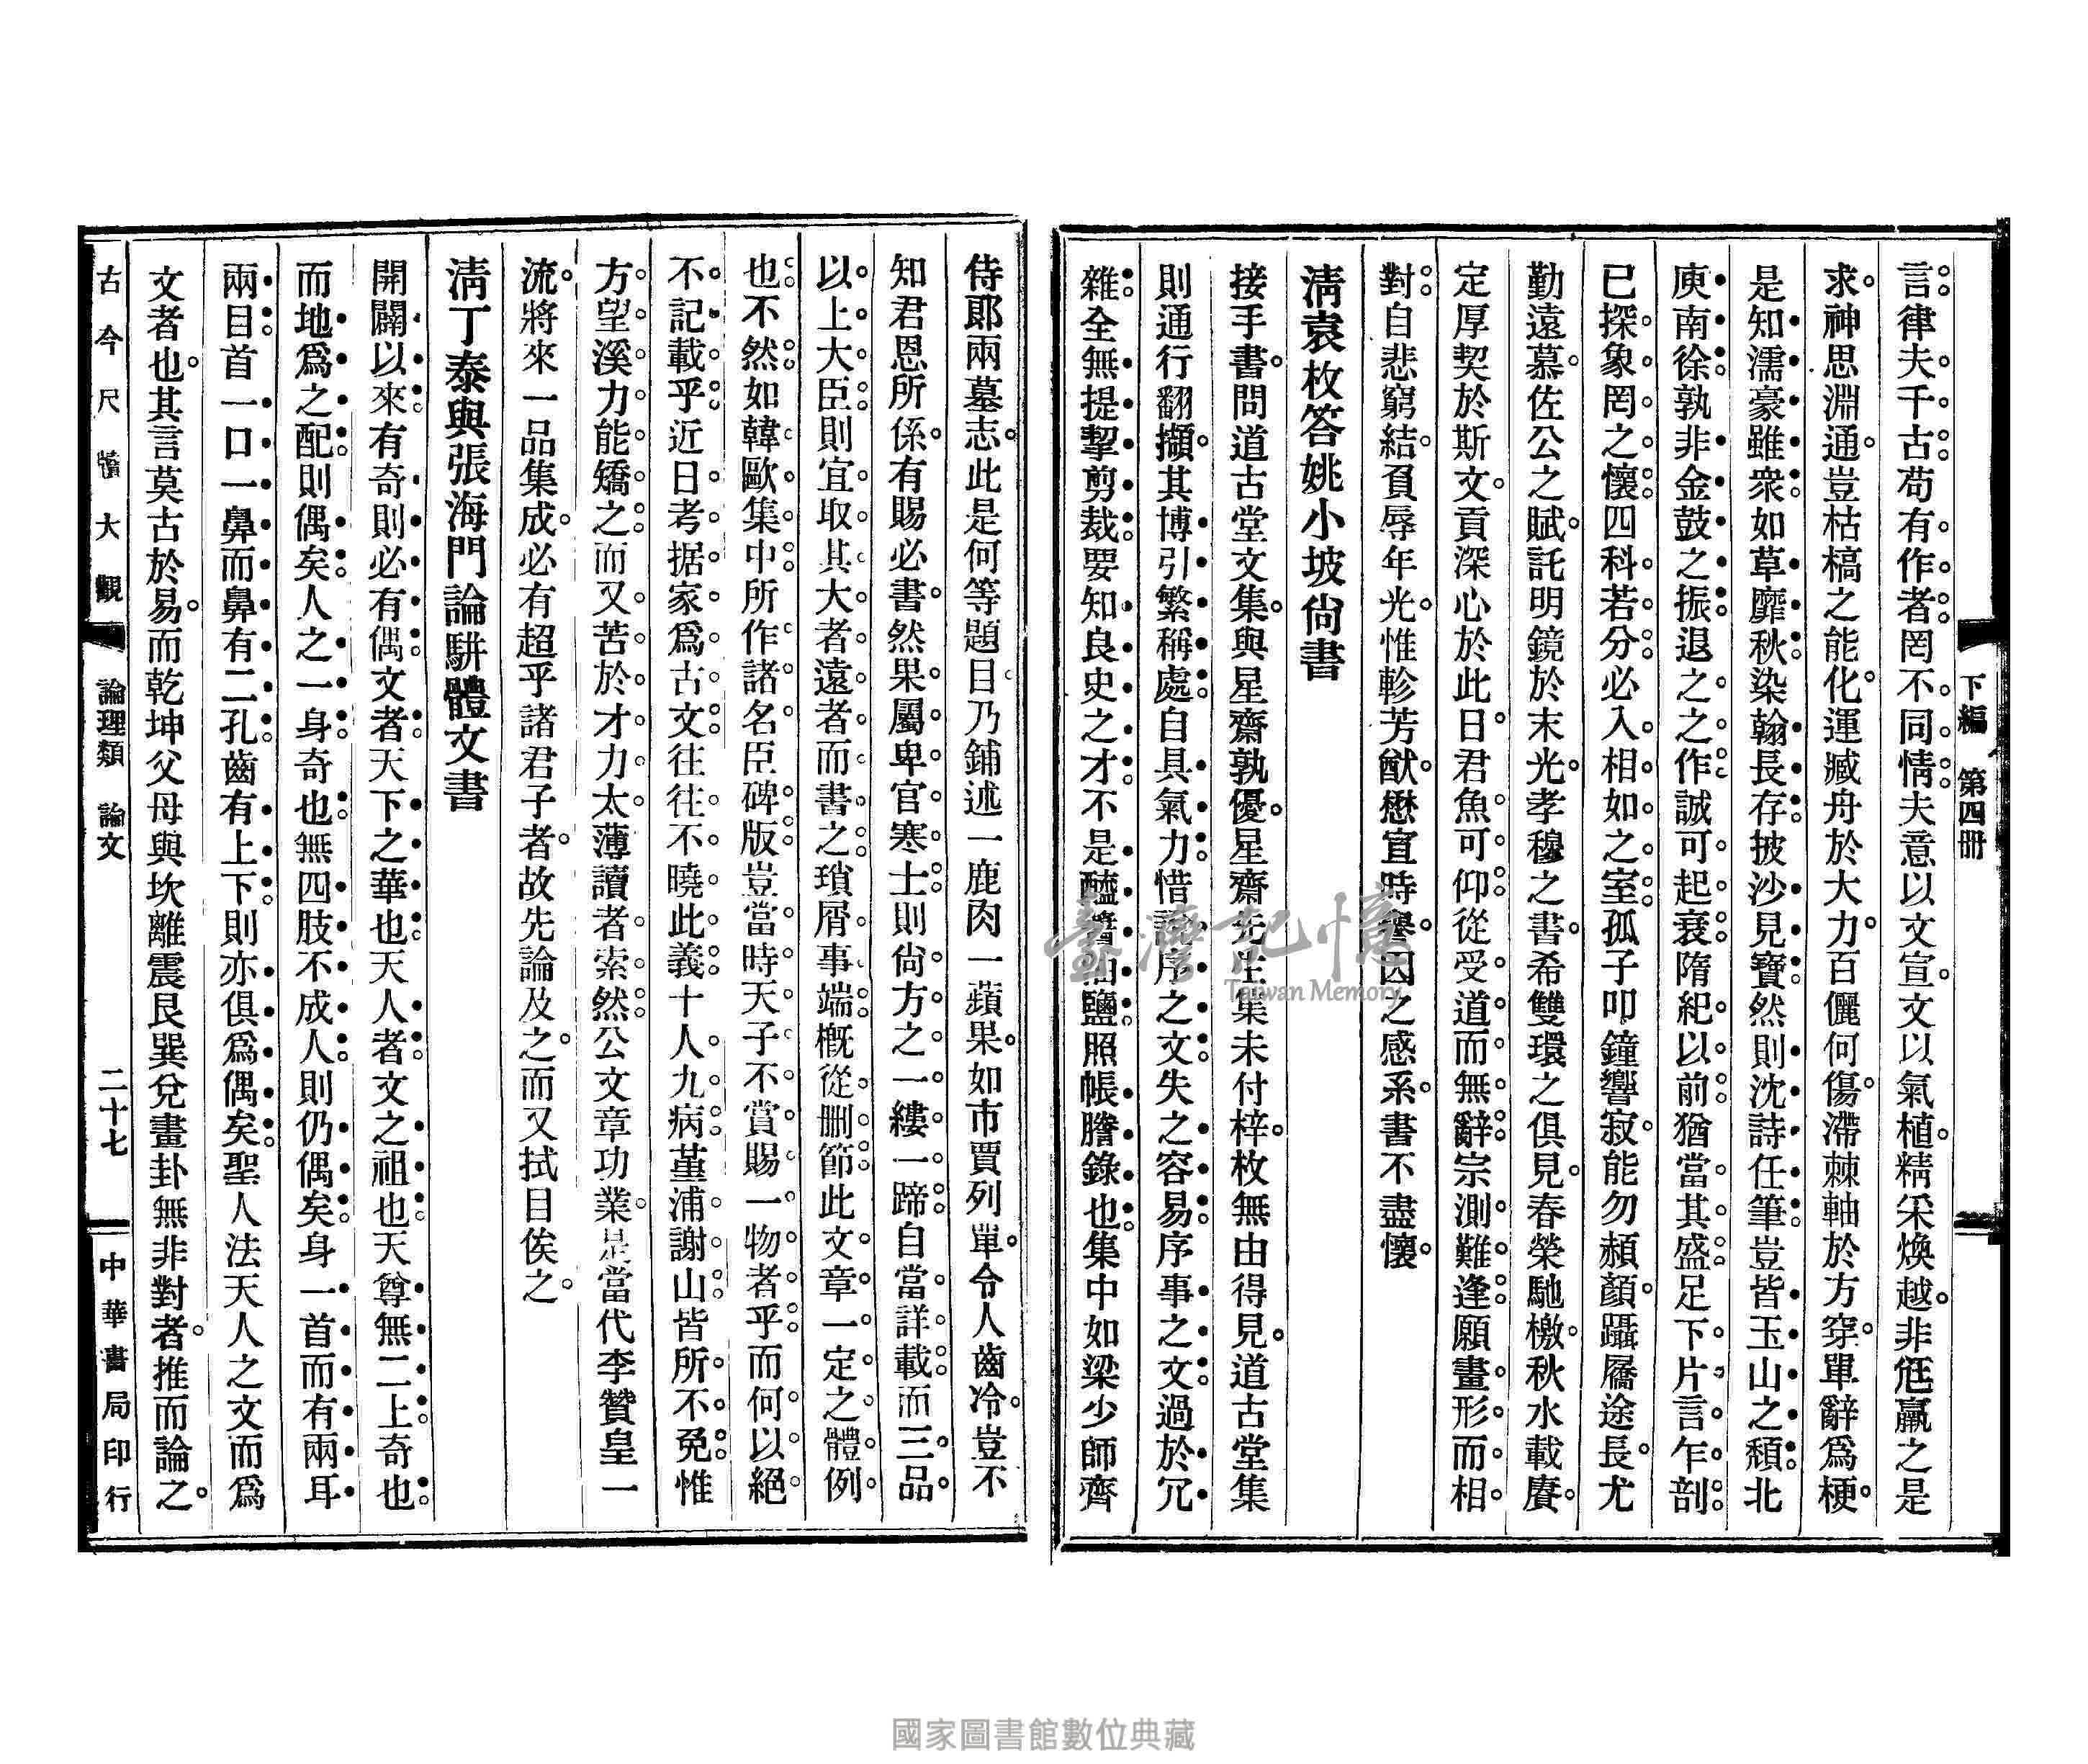 下編 第四冊
言律夫千古苟有作者罔不同情夫意以文宣文以氣植精采煥越非尪羸之是
求神思淵通豈枯槁之能化運臧舟於大力百儷何傷滯棘軸於方穿單辭爲梗
是知濡豪雖衆如草靡秋染翰長存披沙見寶然則沈詩任筆豈皆玉山之頹北
庾南徐孰非金鼓之振退之之作誠可起衰隋紀以前猶當其盛足下片言乍剖
已探象罔之懷四科若分必入相如之室孤子叩鐘響寂能勿頳顏躡屩途長尤
勤遠慕佐公之賦託明鏡於末光孝穆之書希雙環之俱見春榮馳檄秋水載賡
定厚契於斯文貢深心於此日君魚可仰從受道而無辭宗測難逢願畫形而相
對自悲窮結負辱年光惟軫芳猷懋宣時譽因之感系書不盡懷
清袁枚答姚小坡尙書
接手書問道古堂文集與星齋孰優星齋先生集未付梓枚無由得見道古堂集
則通行翻擷其博引繁稱處自具氣力惜誌序之文失之容易序事之文過於冗
雜全無提挈剪裁要知良史之才不是醯醬油鹽照帳謄錄也集中如梁少師齊
侍郞兩墓志此是何等題目乃鋪述一鹿肉一蘋果如市賈列單令人齒冷豈不
知君恩所係有賜必書然果屬卑官寒士則尙方之一縷一蹄自當詳載而三品
以上大臣則宜取其大者遠者而書之瑣屑事端槪從删節此文章一定之體例
也不然如韓歐集中所作諸名臣碑版豈當時天子不賞賜一物者乎而何以絕
不記載乎近日考据家爲古文往往不曉此義十人九病堇浦謝山皆所不免惟
方望溪力能矯之而又苦於才力太薄讀者索然公文章功業是當代李贊皇一
流將來一品集成必有超乎諸君子者故先論及之而又拭目俟之
清丁泰與張海門論駢體文書
開闢以來有奇則必有偶文者天下之華也天人者文之祖也天尊無二上奇也
而地爲之配則偶矣人之一身奇也無四肢不成人則仍偶矣身一首而有兩耳
兩目首一口一鼻而鼻有二孔齒有上下則亦俱爲偶矣聖人法天人之文而爲
文者也其言莫古於易而乾坤父母與坎離震艮巽兌畫卦無非對者推而論之
古今尺牘大觀 論理類 論文 二十七 中華書局印行
臺灣記憶
Taiwan Memory
國家圖書館數位典藏